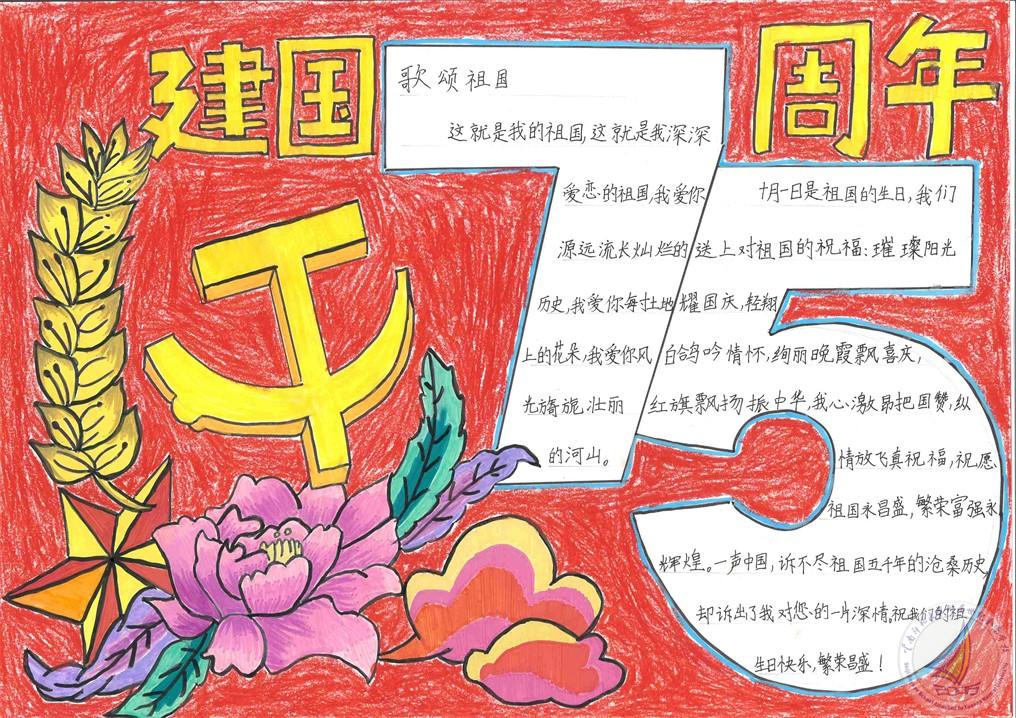 建国75周年
歌颂祖国
这就是我的祖国,这就是我深深
爱恋的祖国,我爱你
源远流长灿烂的
历史,我爱你每寸土地
上的花朵,我爱你风
光旖旎壮丽
的河山。
十月一日是祖国的生日,我们
送上对祖国的祝福:璀璨阳光
耀国庆,轻翔
白鸽吟情怀,绚丽晚霞飘喜庆,
红旗飘扬振中华,我心激昂把国赞,纵
情放飞真祝福,祝愿
祖国永昌盛,繁荣富强永
辉煌。一声中国,诉不尽祖国五千年的沧桑历史,
却诉出了我对您的一片深情。祝我们的祖
生日快乐,繁荣昌盛!